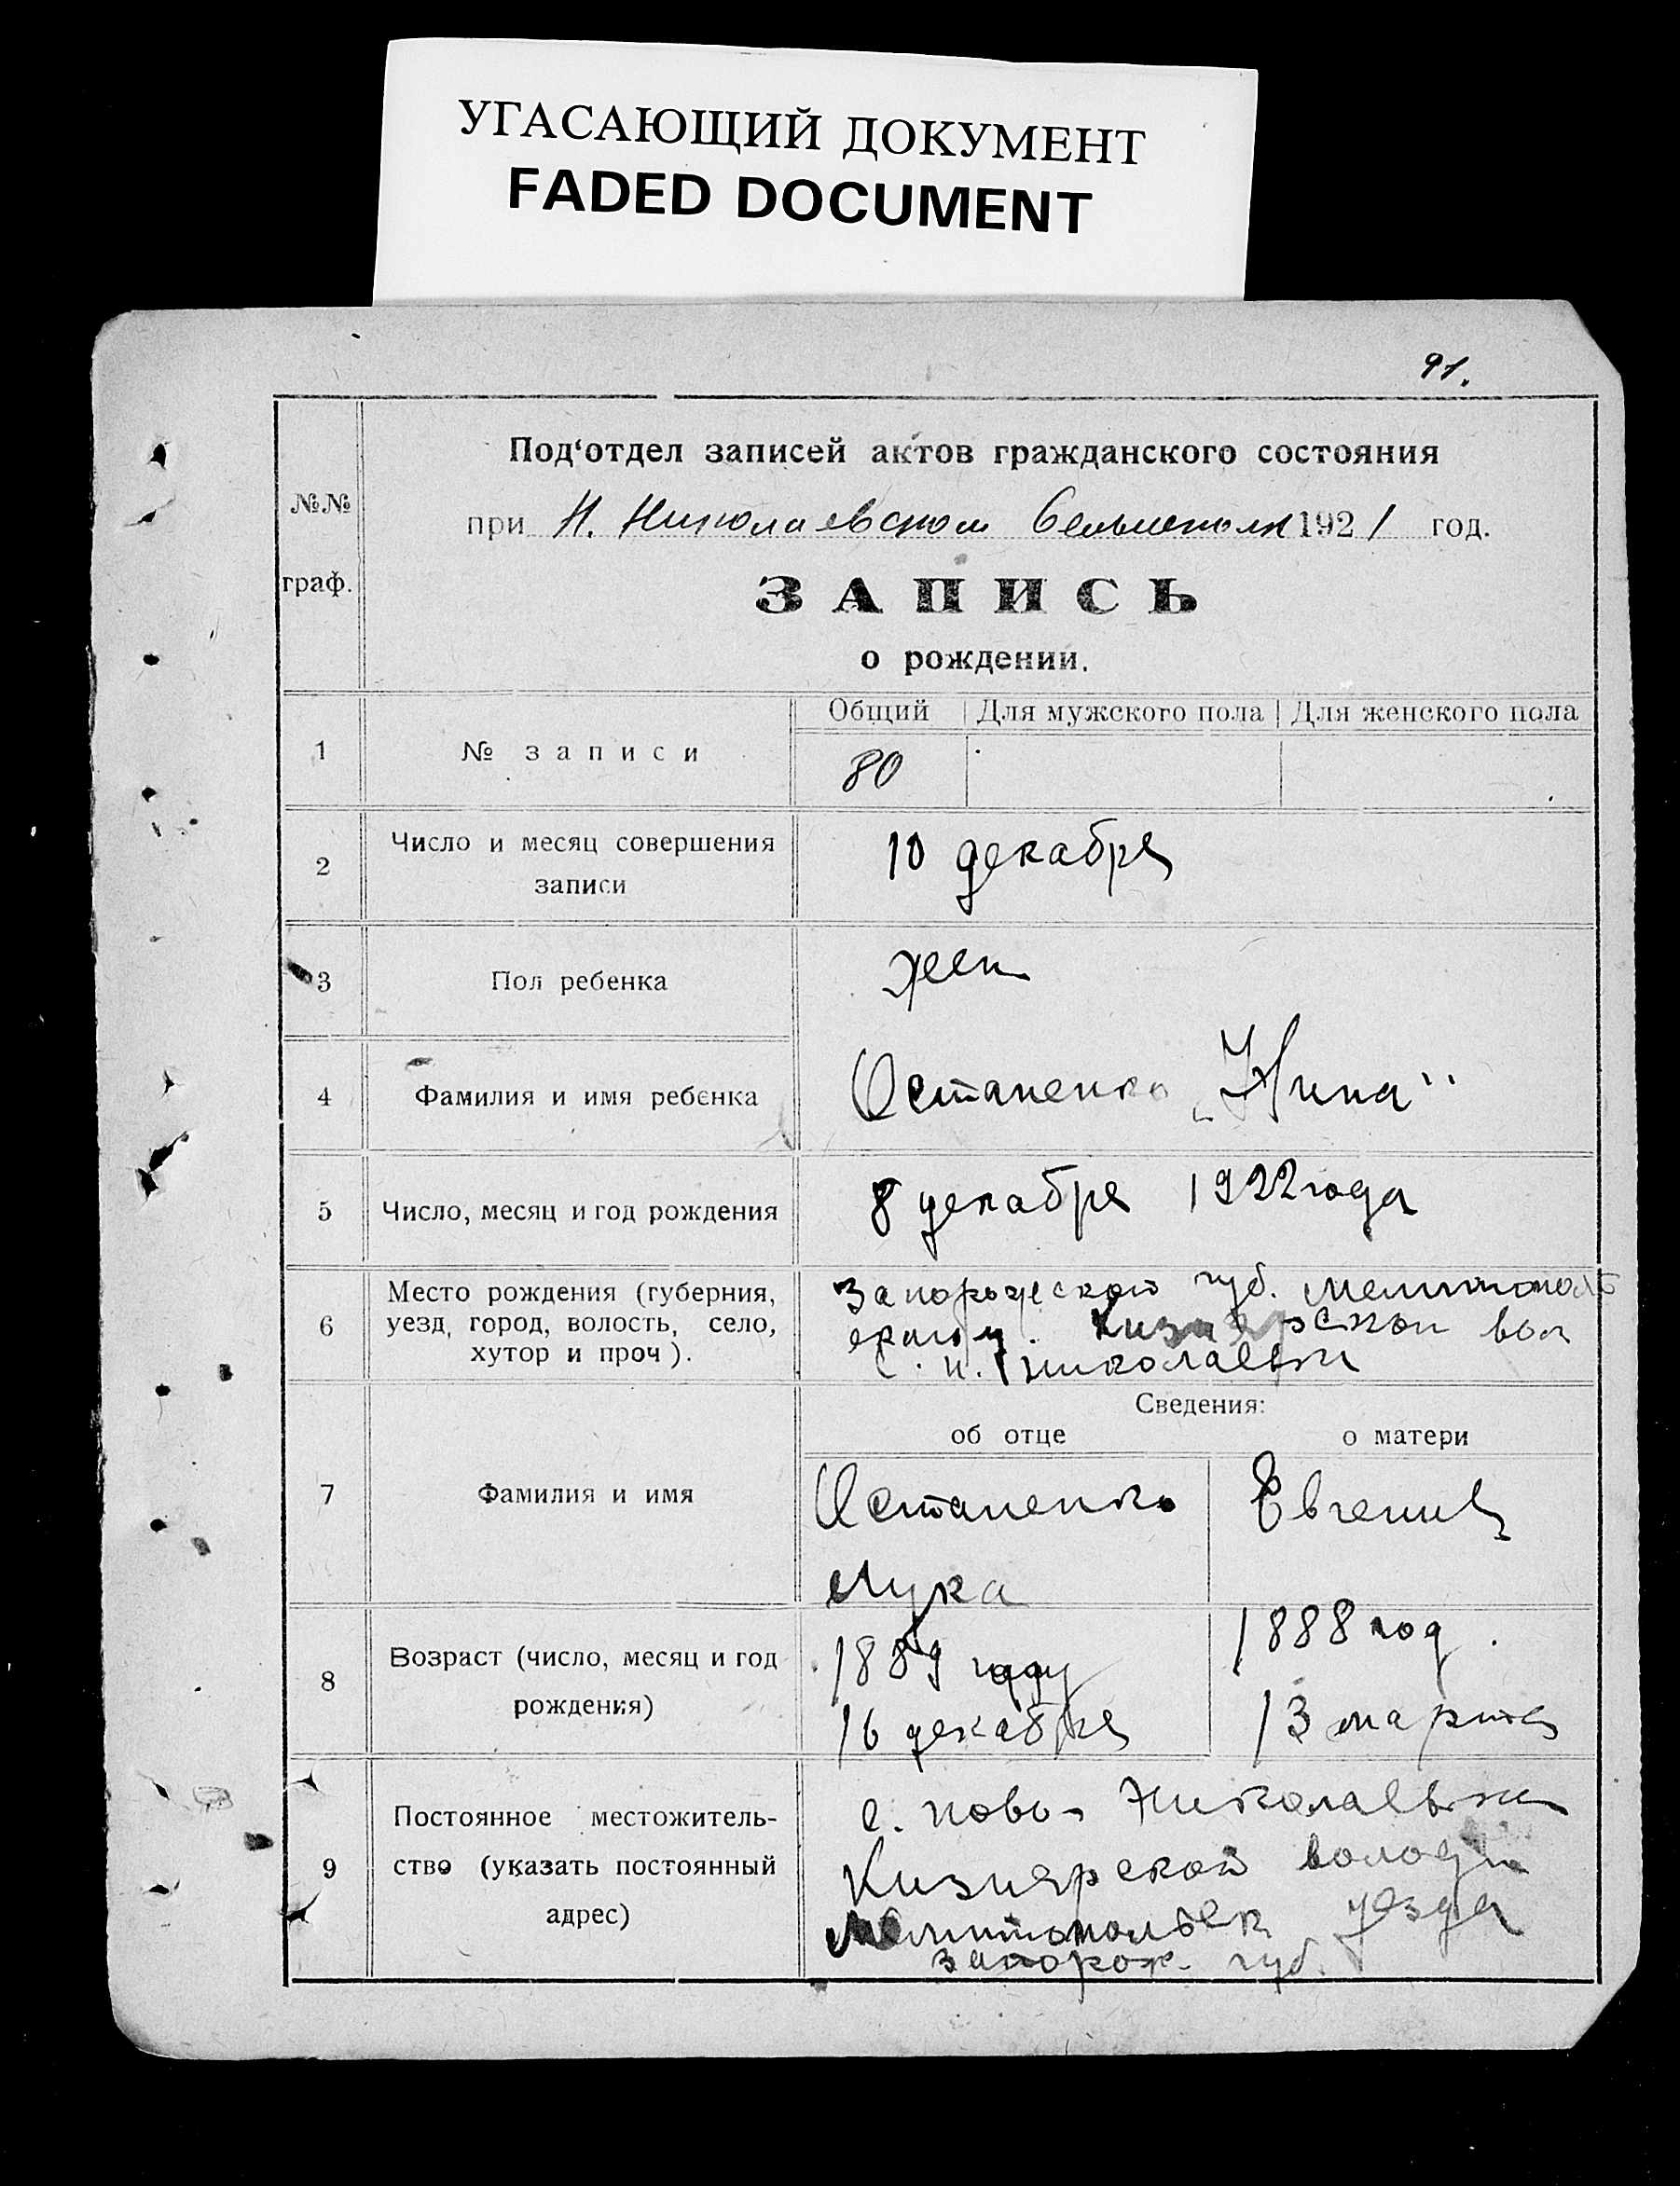 УГАСАЮЩИЙ ДОКУМЕНТ
FADED DOCUMENT
91.
№№ граф.
Под‘отдел записей актов гражданского состояния
при Н. Николаевском 1921 год.
ЗАПИСЬ
о рождении.
Общий Для мужского пола Для женского пола
1 № записи 80
2 Число и месяц совершения записи 10 декабря
3 Пол ребенка жен
4 Фамилия и имя ребенка Остапенко „Нина“
5 Число, месяц и год рождения 8 декабря 1922 года
6 Место рождения (губерния,
уезд, город, волость, село,
хутор и проч).
Запорожской губ. Мелитополь
ском у. Кизиярской вол
с. н. Николаевки
Сведения:
об отце о матери
7 Фамилия и имя
Остапенко Евгения
Лука
8 Возраст (число, месяц и год
рождения)
1889 году 1888 год.
16 декабря 13 марта
9 Постоянное местожитель-
ство (указать постоянный
адрес)
с. ново-Николаевки
Кизиярской волости
Мелитопольск уезда
запорож. губ.